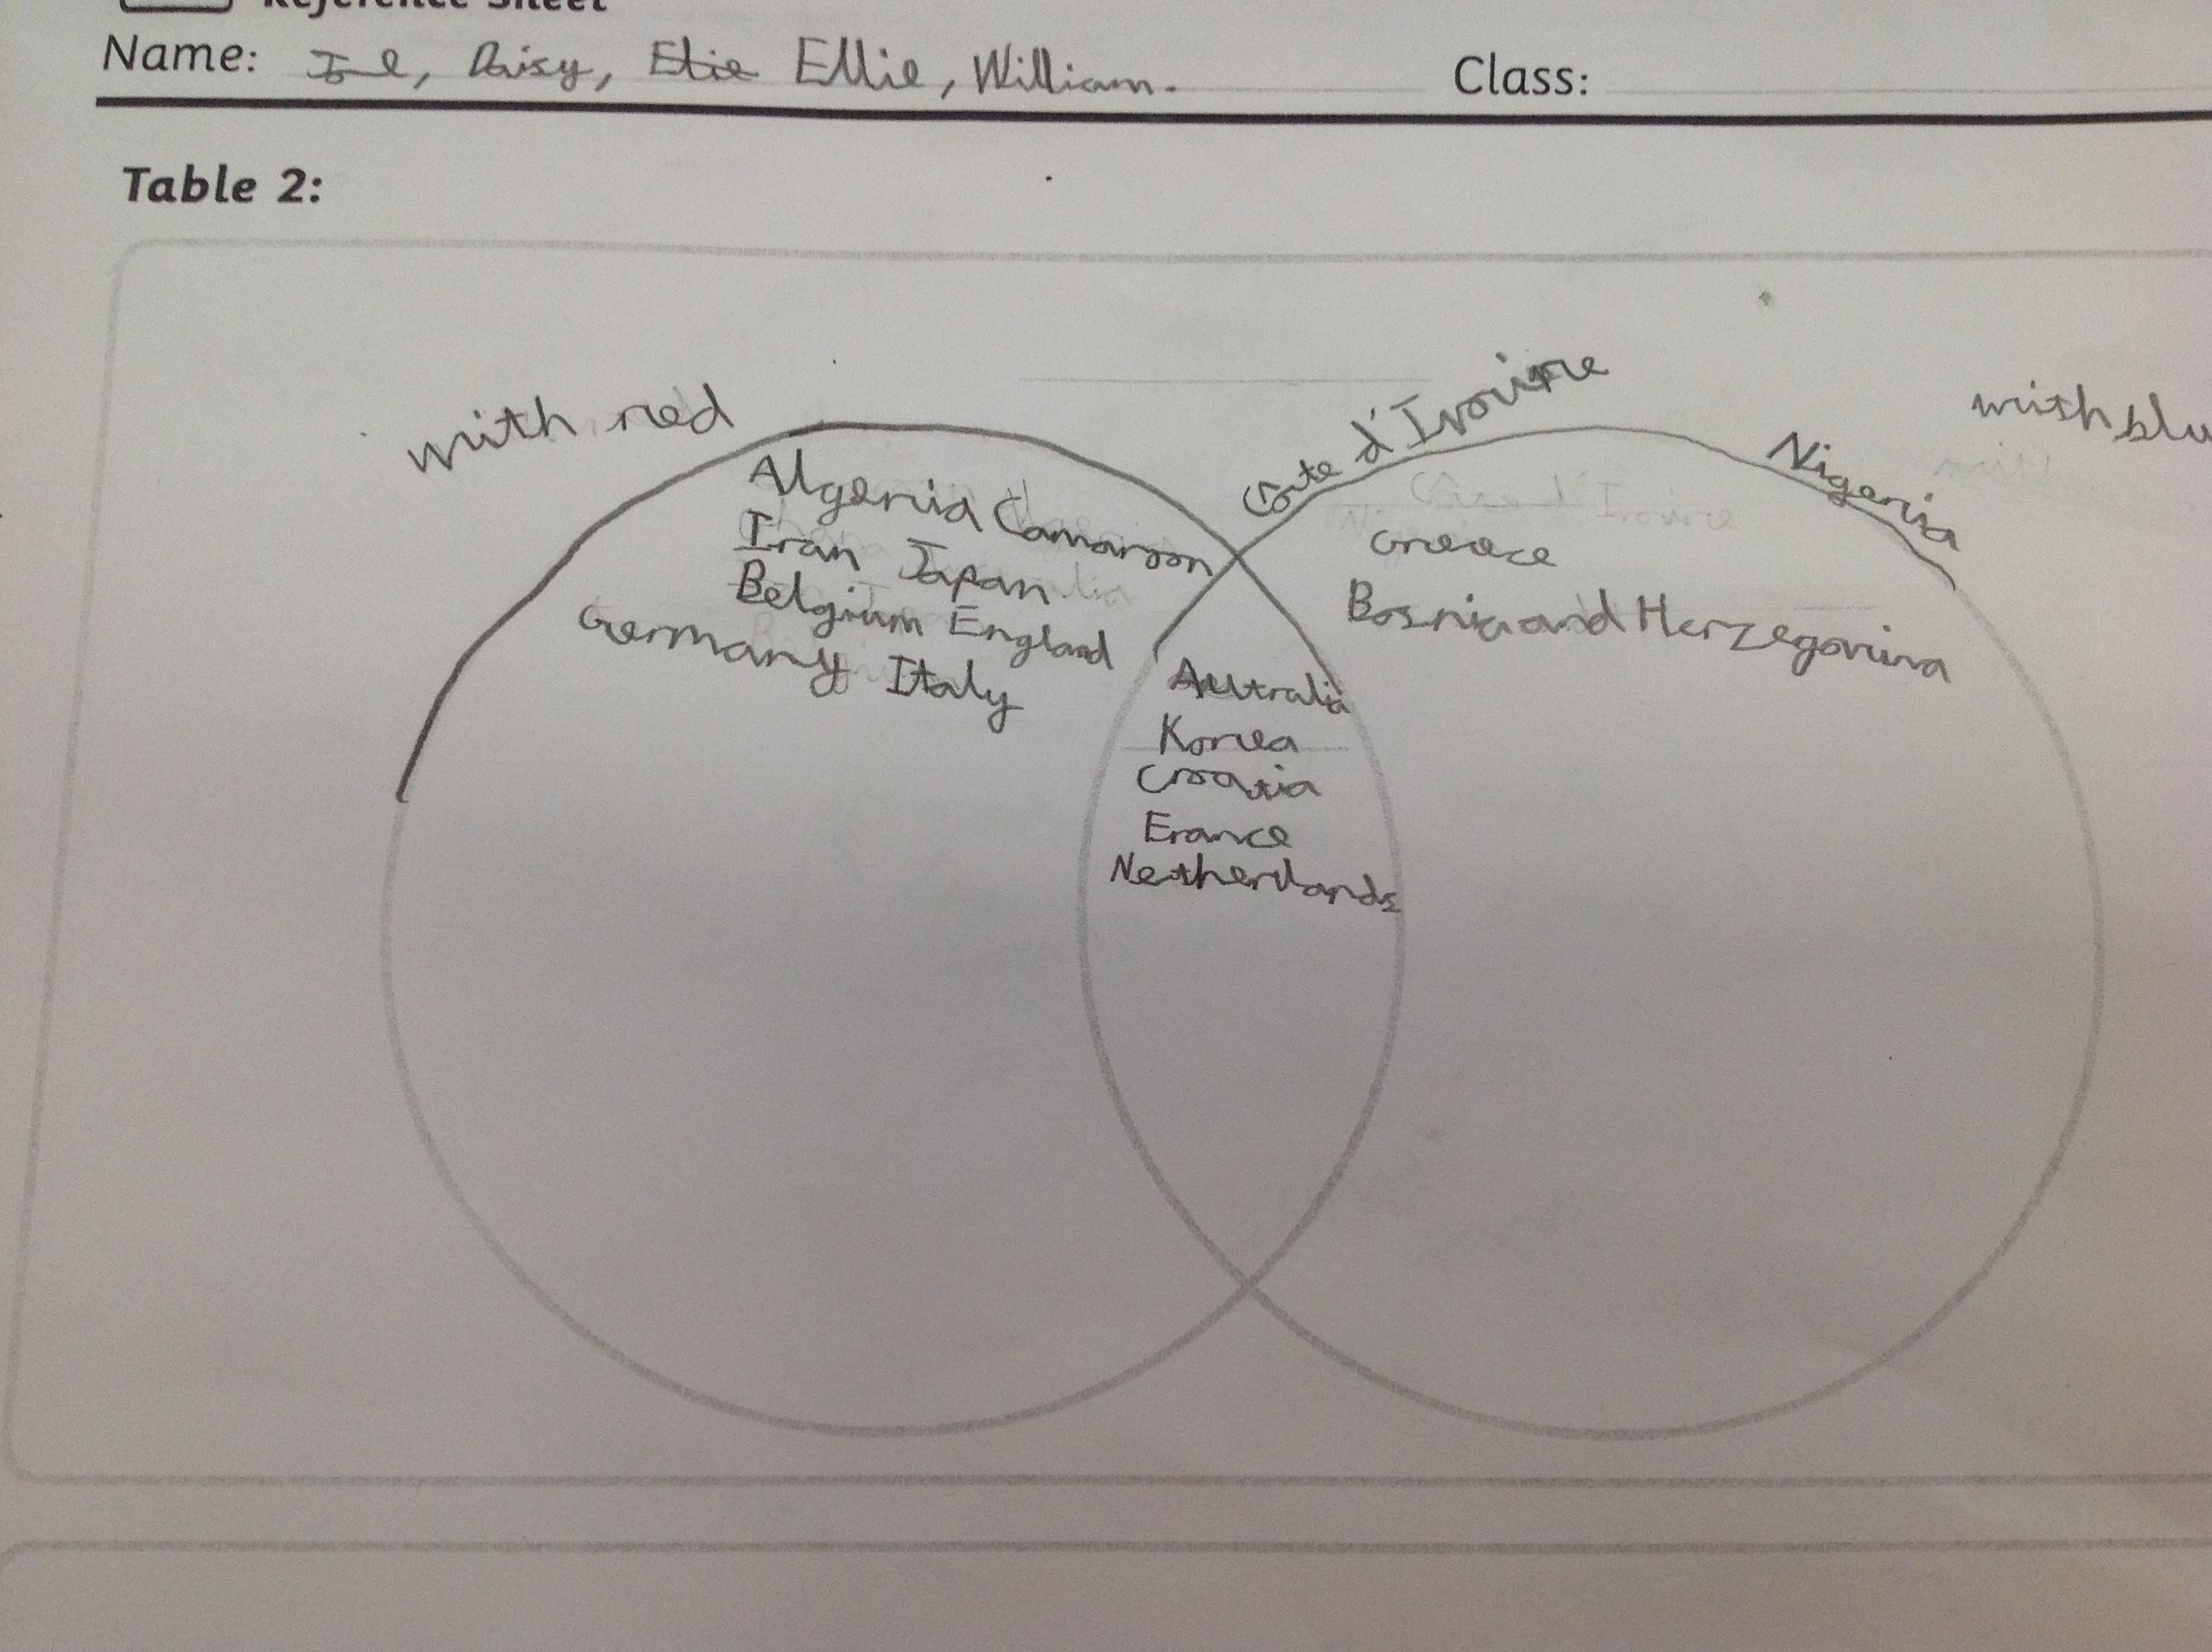 Reference Sheet
Name: Daisy, Elie Ellie, William. Class:
Table 2:
with red
Cote d'Ivoire
Nigeria
with blu
Algeria Camaroon
Iran Japan
Belgium England
Germany Italy
Greece
Bosnia and Herzegovina
Autralia
Korea
Croatia
France
Netherlands